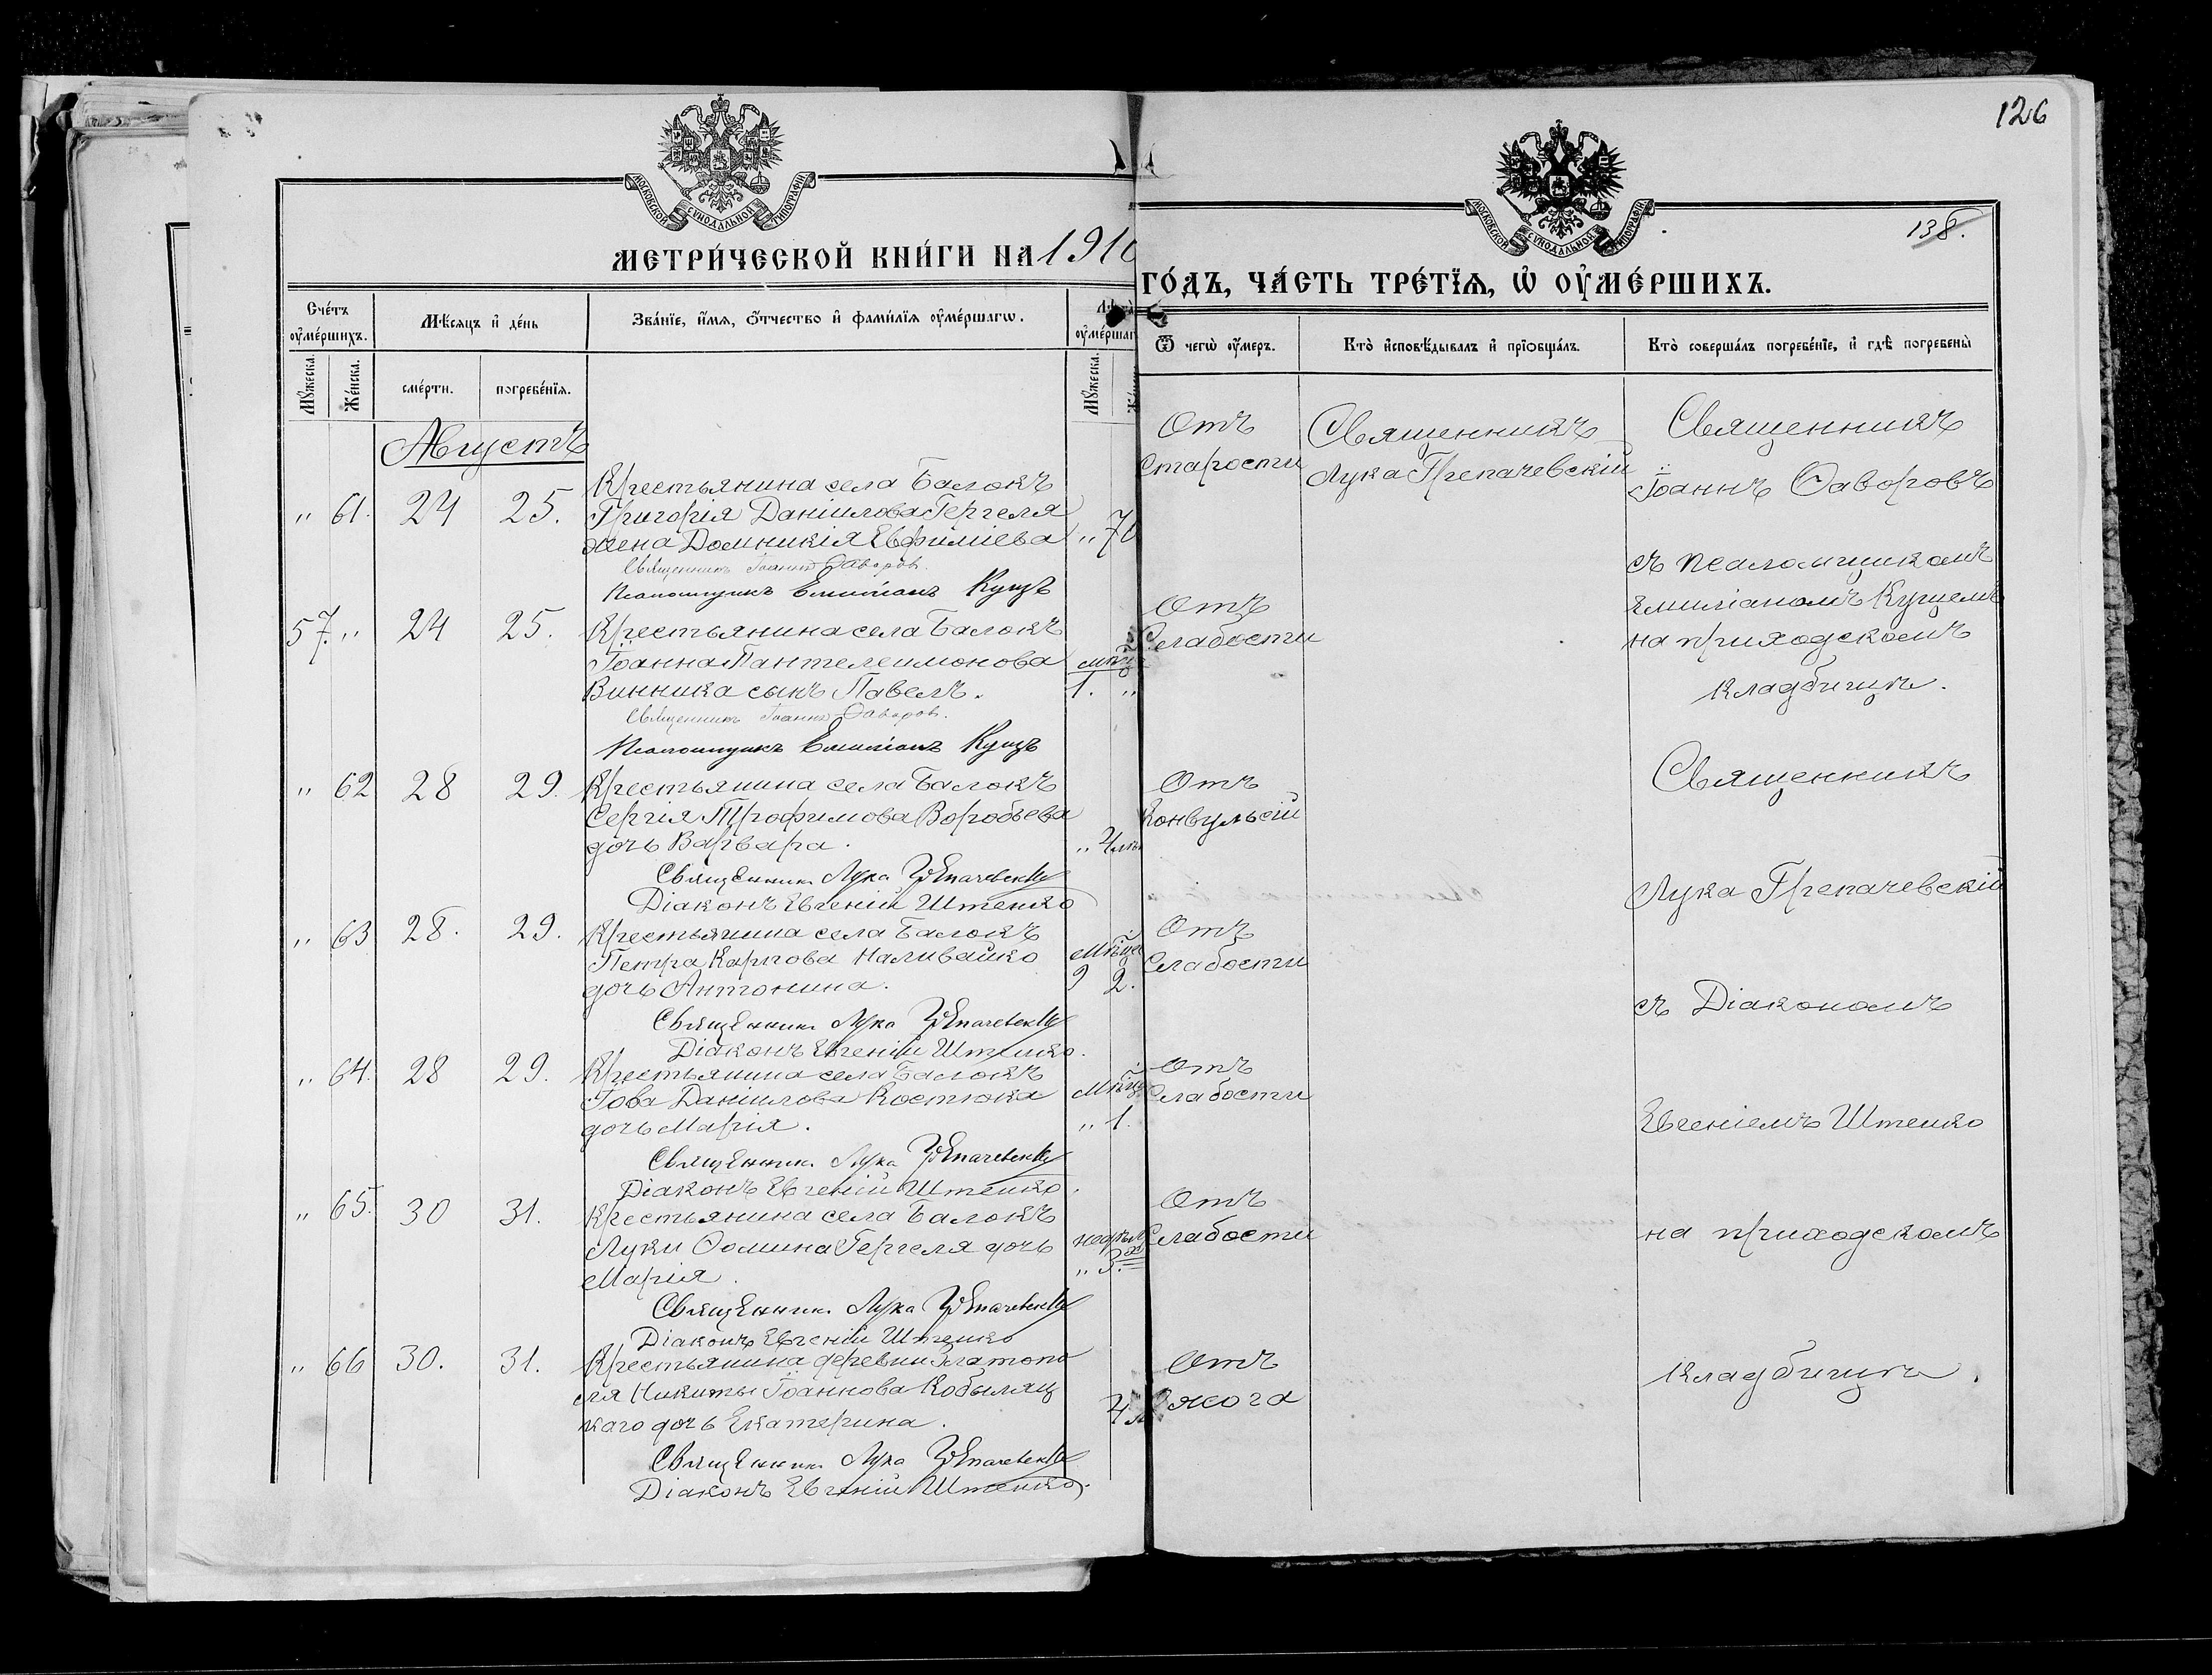 126
138.
МОСКОВСКОЙ СѴНОДАЛЬНОЙ ТИПОГРАФІИ
МОСКОВСКОЙ СѴНОДАЛЬНОЙ ТИПОГРАФІИ
МЕТРИ́ЧЕСКОЙ КНИ́ГИ НА 1910
ГО́ДЪ, ЧА́СТЬ ТРЕ́ТЇѦ, Ѡ҆ ОУ҆МЕ́РШИХЪ.
Сче́тъ оу҆ме́ршихъ.
Мѣ́сяцъ и҆ де́нь
Зва́нїе, и҆́мѧ, ѻ҆́тчество и҆ фами́лїѧ оу҆ме́ршагѡ.
Лѣ
оу҆ме́ршаг
Ѿ чегѡ̀ оу҆́меръ.
Кто̀ и҆сповѣ́дывалъ и҆ прїѻбща́лъ.
Кто̀ соверша́лъ погребе́нїе, и҆ гдѣ̀ погребены̀
Мꙋ́жеска.
Же́нска.
сме́рти.
погребе́нїѧ.
Мꙋ́жеска.
Августъ
" 61. 24 25.
Крестьянина села Балокъ
Григорія Даніилова Гергеля
жена Домникія Евфиміева " 70
Священникъ Іоаннъ Ѳаворовъ.
Псаломщикъ Емиліанъ Куцъ
Отъ
Старости
Священникъ
Лука Грепачевскій
Священникъ
Іоаннъ Ѳаворовъ
съ псаломщикомъ
Емиліаномъ Куцемъ
на приходскомъ
кладбищѣ.
57. " 24 25.
Крестьянина села Балокъ
Іоанна Пантелеимонова мѣс
Винника сынъ Павелъ. 1. "
Священникъ Іоаннъ Ѳаворовъ.
Псаломщикъ Емиліанъ Куцъ
Отъ
Слабости
" 62 28 29.
Крестьянина села Балокъ
Сергія Трофимова Воробьева
дочь Варвара. " 4
Священникъ Лука Грепачевскій
Діаконъ Евгеній Штенко
Отъ
Конвульсій
Священникъ
Лука Грепачевскій
съ Діакономъ
Евгеніемъ Штенко
на приходскомъ
кладбищѣ.
" 63 28. 29.
Крестьянина села Балокъ
Петра Карпова Наливайко Мѣсце
дочь Антонина. 2.
Священникъ Лука Грепачевскій
Діаконъ Евгеній Штенко.
Отъ
Слабости
" 64. 28 29.
Крестьянина села Балокъ
Іова Даніилова Костюка Мѣсц
дочь Марія. " 1.
Священникъ Лука Грепачевскій
Діаконъ Евгеній Штенко.
Отъ
Слабости
" 65. 30 31.
Крестьянина села Балокъ
Луки Ѳомина Гергеля дочь недѣль
Марія. " 3.
Священникъ Лука Грепачевскій
Діаконъ Евгеній Штенко
Отъ
Слабости
" 66 30. 31.
Крестьянина деревни Златопо
ля Никиты Іоаннова Кобыляц
каго дочь Екатерина. 4
Священникъ Лука Грепачевскій
Діаконъ Евгеній Штенко.
Отъ